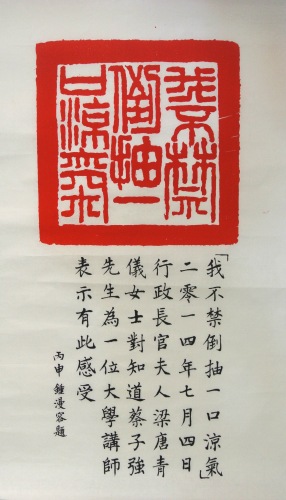 我不禁
倒抽一
口涼氣
「我不禁倒抽一口涼氣」
二零一四年七月四日
行政長官夫人梁唐青
儀女士對知道蔡子強
先生為一位大學講師
表示有此感受
丙申 鍾漫容題